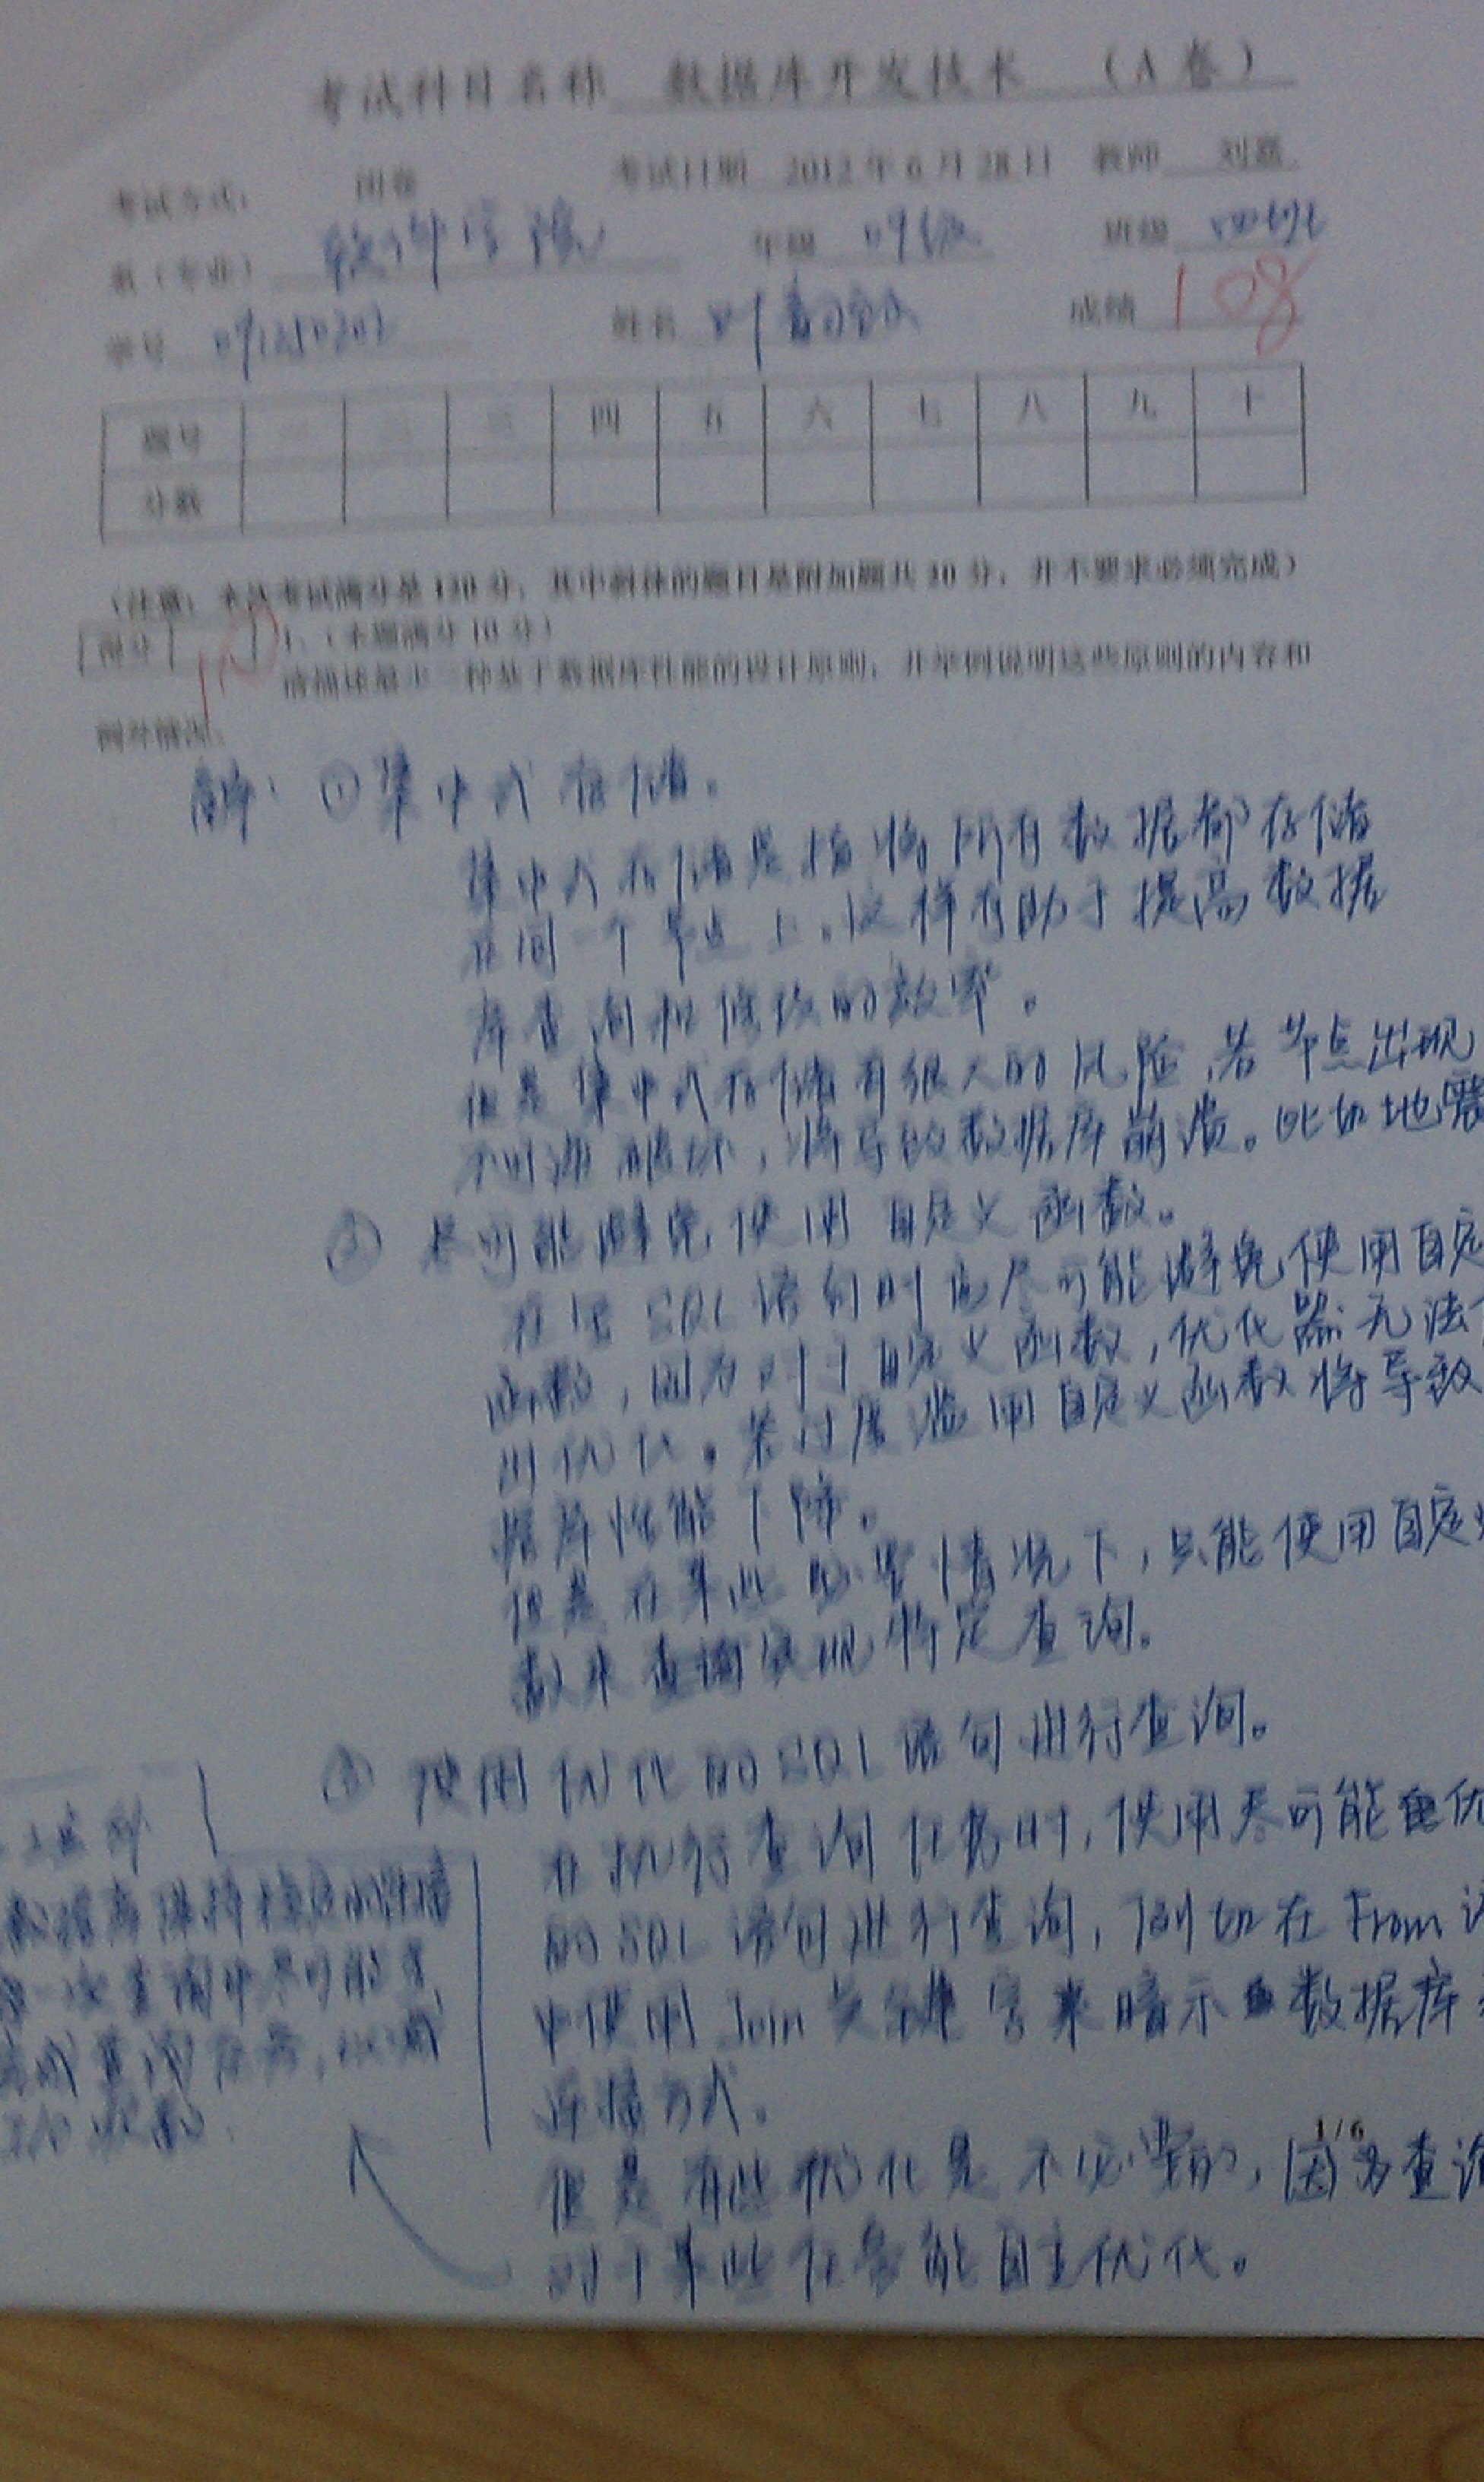 考试科目名称 数据库开发技术 （A 卷）
考试方式： 闭卷 考试日期 2012 年 6 月 28 日 教师 刘嘉
系（专业） 软件学院 年级 09级 班级
学号 091250202 姓名 成绩 108
题号 一 二 三 四 五 六 七 八 九 十
分数
（注意：本次考试满分是 120 分，其中斜体的题目是附加题共 20 分，并不要求必须完成）
得分 10 1、（本题满分 10 分）
请描述最少三种基于数据库性能的设计原则，并举例说明这些原则的内容和
例外情况。
解： ① 集中式存储。
集中式存储是指将所有数据都存储
在同一个节点上。这样有助于提高数据
库查询和修改的效率。
但是集中式存储有很大的风险，若节点出现
不可逆破坏，将导致数据库崩溃。比如地震
② 尽可能避免使用自定义函数。
在写SQL语句时应尽可能避免使用自定
函数，因为对于自定义函数，优化器无法
优化。若过度滥用自定义函数将导致
据库性能下降。
但是在某些必要情况下，只能使用自定义
数来实现特定查询。
③ 使用优化的SQL语句进行查询。
在执行查询任务时，使用尽可能优
的SQL语句进行查询，例如在From
中使用Join关键字来暗示数据库
连接方式。
但是有些优化是不必要的，因为查询
对于某些任务能自主优化。
数据库保持稳定的连接
一次查询中尽可能多
1/6